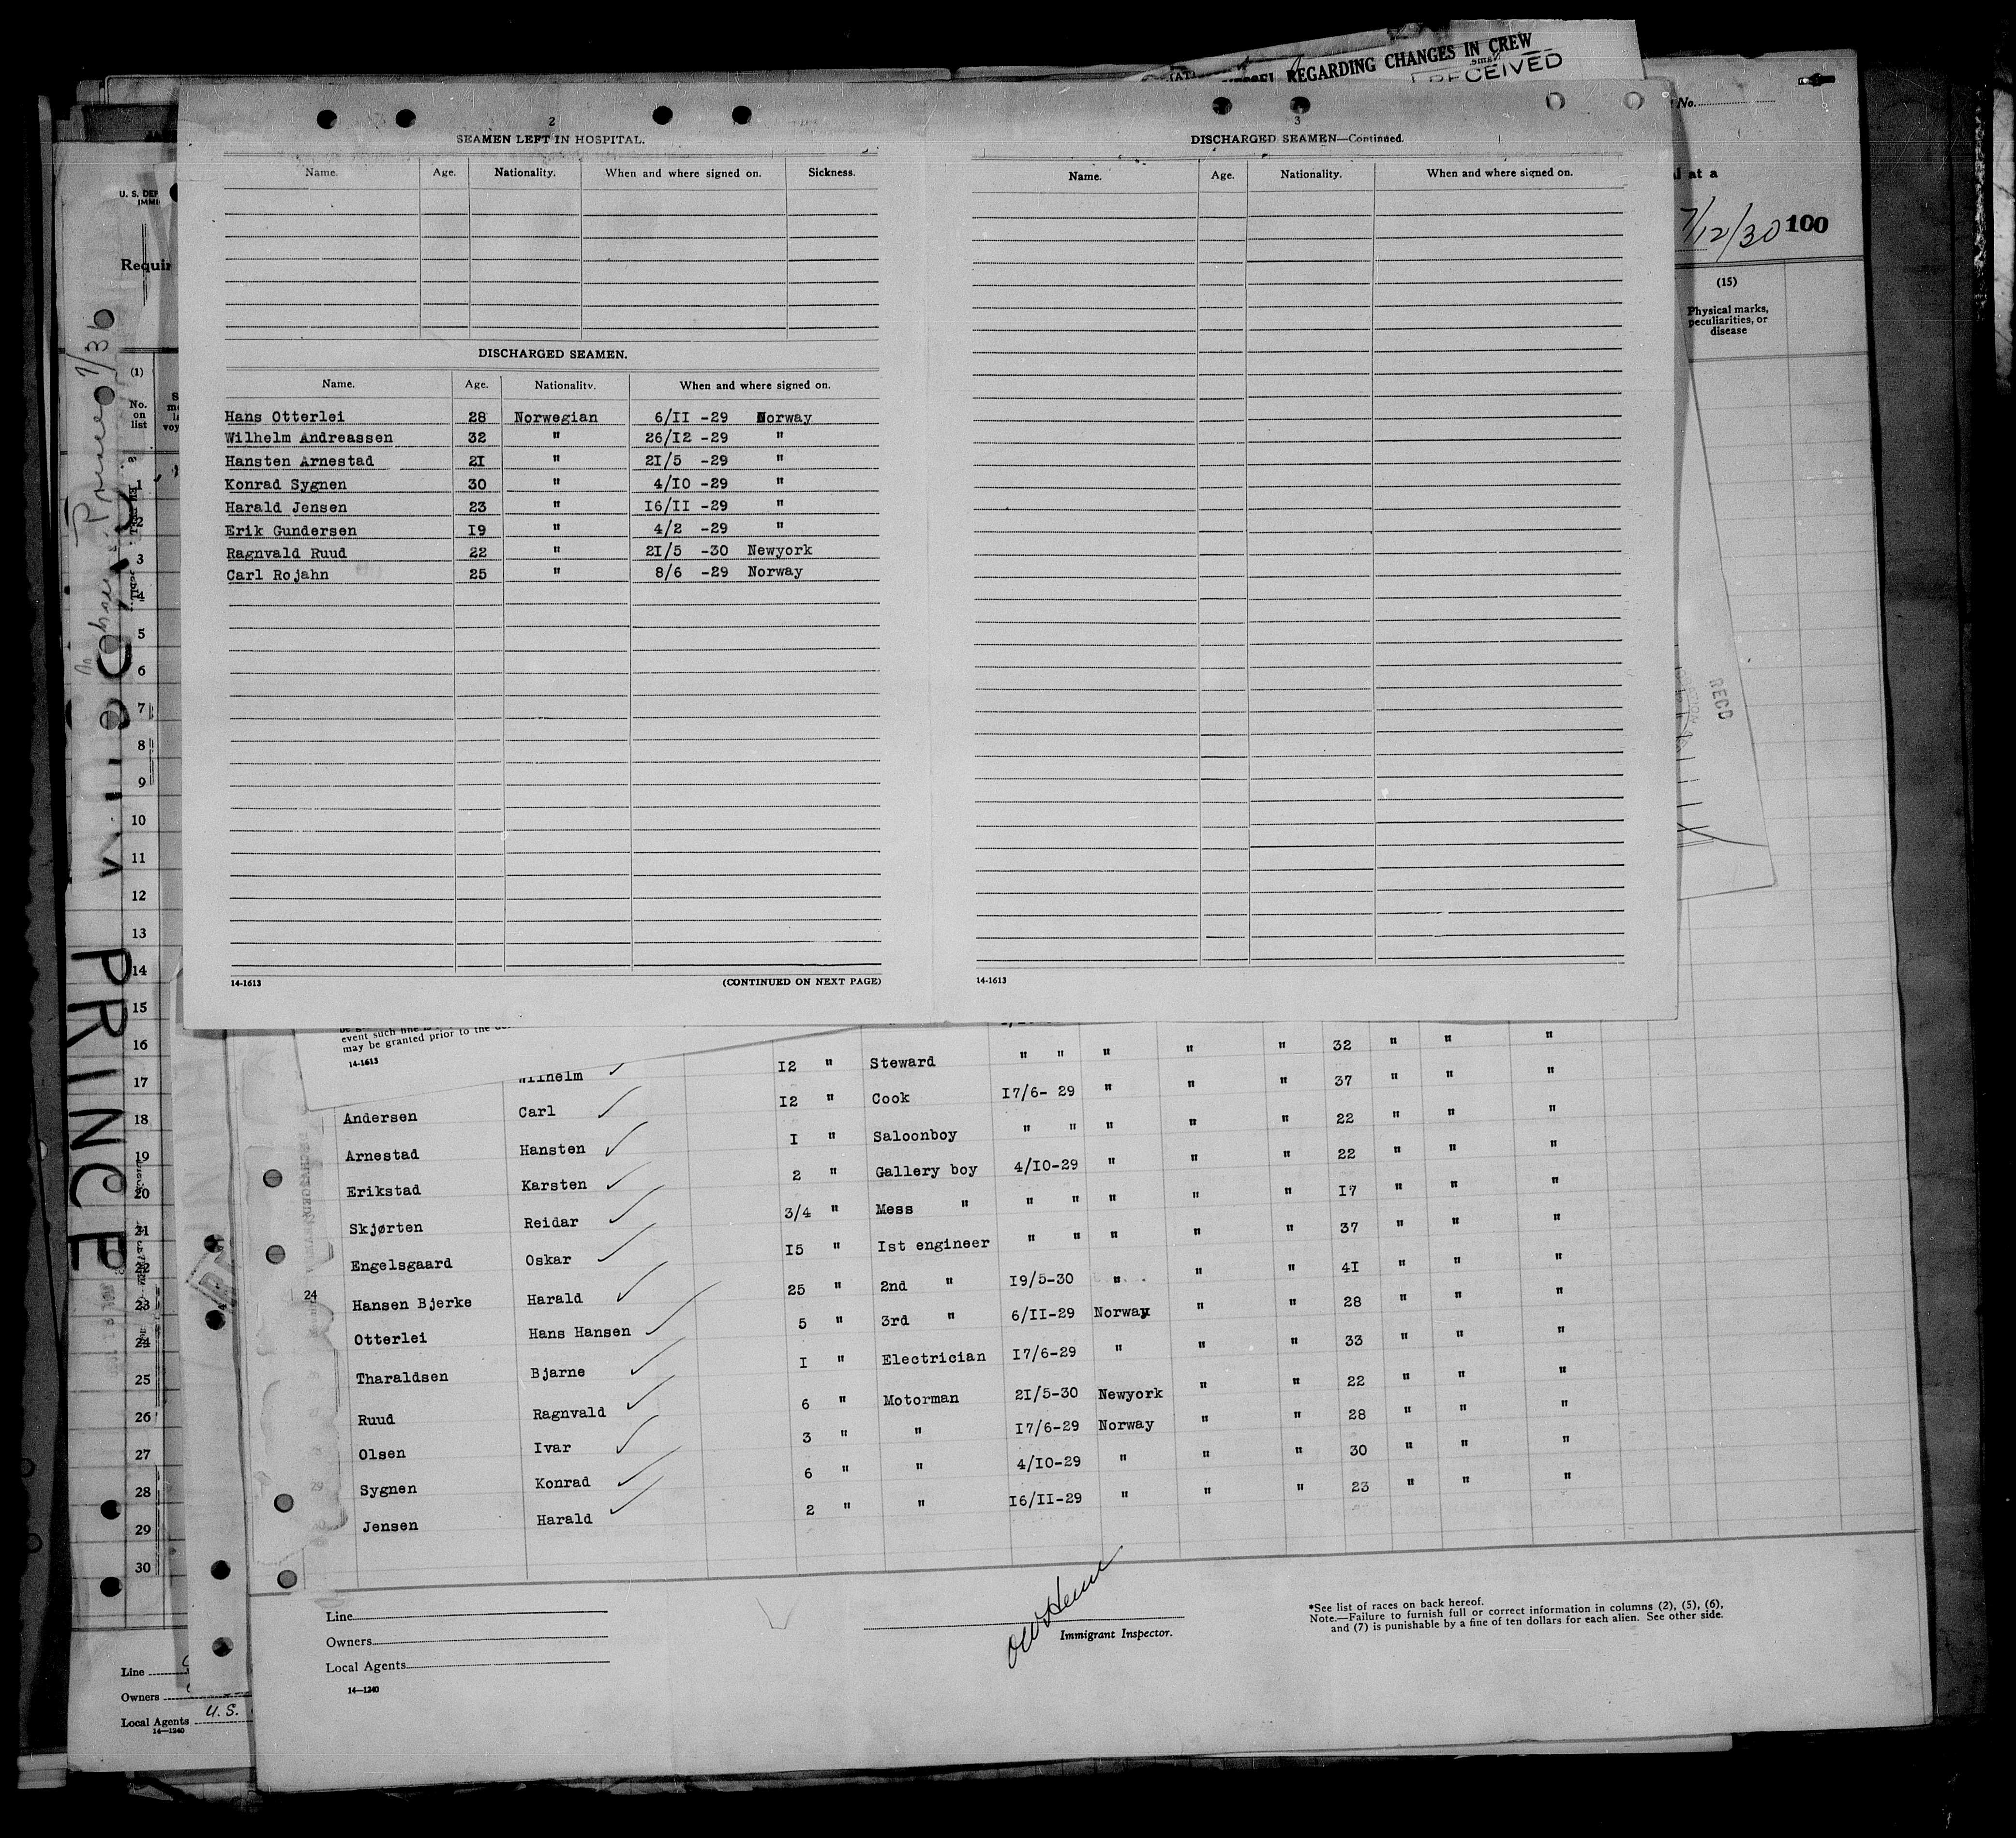 REGARDING CHANGES IN CREW
RECEIVED
No.
at a
7/12/30 100
(15)
Physical marks,
peculiarities, or
disease
RECD
2
SEAMEN LEFT IN HOSPITAL.
Name. Age. Nationality. When and where signed on. Sickness.
DISCHARGED SEAMEN.
Name. Age. Nationality. When and where signed on.
Hans Otterlei 28 Norwegian 6/II -29 Norway
Wilhelm Andreassen 32 " 26/I2 -29 "
Hansten Arnestad 2I " 2I/5 -29 "
Konrad Sygnen 30 " 4/I0 -29 "
Harald Jensen 23 " I6/II -29 "
Erik Gundersen I9 " 4/2 -29 "
Ragnvald Ruud 22 " 2I/5 -30 Newyork
Carl Rojahn 25 " 8/6 -29 Norway
14-1613 (CONTINUED ON NEXT PAGE)
3
DISCHARGED SEAMEN—Continued.
Name. Age. Nationality. When and where signed on.
14-1613
U. S. DEP
IMMI
Requir
(1)
No.
on
list
1
2
3
4
5
6
7
8
9
10
11
12
13
14
15
16
17
18
19
20
21
22
23
24
25
26
27
28
29
30
PRINCE
Line
Owners
Local Agents U. S.
14—1240
event such fine is
may be granted prior to the
14-1613
Wilhelm I2 " Steward " " " " " 32 " " "
Andersen Carl I2 " Cook I7/6- 29 " " " 37 " " "
Arnestad Hansten I " Saloonboy " " " " " 22 " " "
Erikstad Karsten 2 " Gallery boy 4/I0-29 " " " 22 " " "
Skjørten Reidar 3/4 " Mess " " " " " " I7 " " "
Engelsgaard Oskar I5 " Ist engineer " " " " " 37 " " "
24 Hansen Bjerke Harald 25 " 2nd " I9/5-30 " " " 4I " " "
Otterlei Hans Hansen 5 " 3rd " 6/II-29 Norway " " 28 " " "
Tharaldsen Bjarne I " Electrician I7/6-29 " " " 33 " " "
Ruud Ragnvald 6 " Motorman 2I/5-30 Newyork " " 22 " " "
Olsen Ivar 3 " " I7/6-29 Norway " " 28 " " "
29 Sygnen Konrad 6 " " 4/I0-29 " " " 30 " " "
Jensen Harald 2 " " I6/II-29 " " " 23 " " "
Line
Owners
Local Agents
14—1240
Immigrant Inspector.
*See list of races on back hereof.
Note.—Failure to furnish full or correct information in columns (2), (5), (6),
and (7) is punishable by a fine of ten dollars for each alien. See other side.